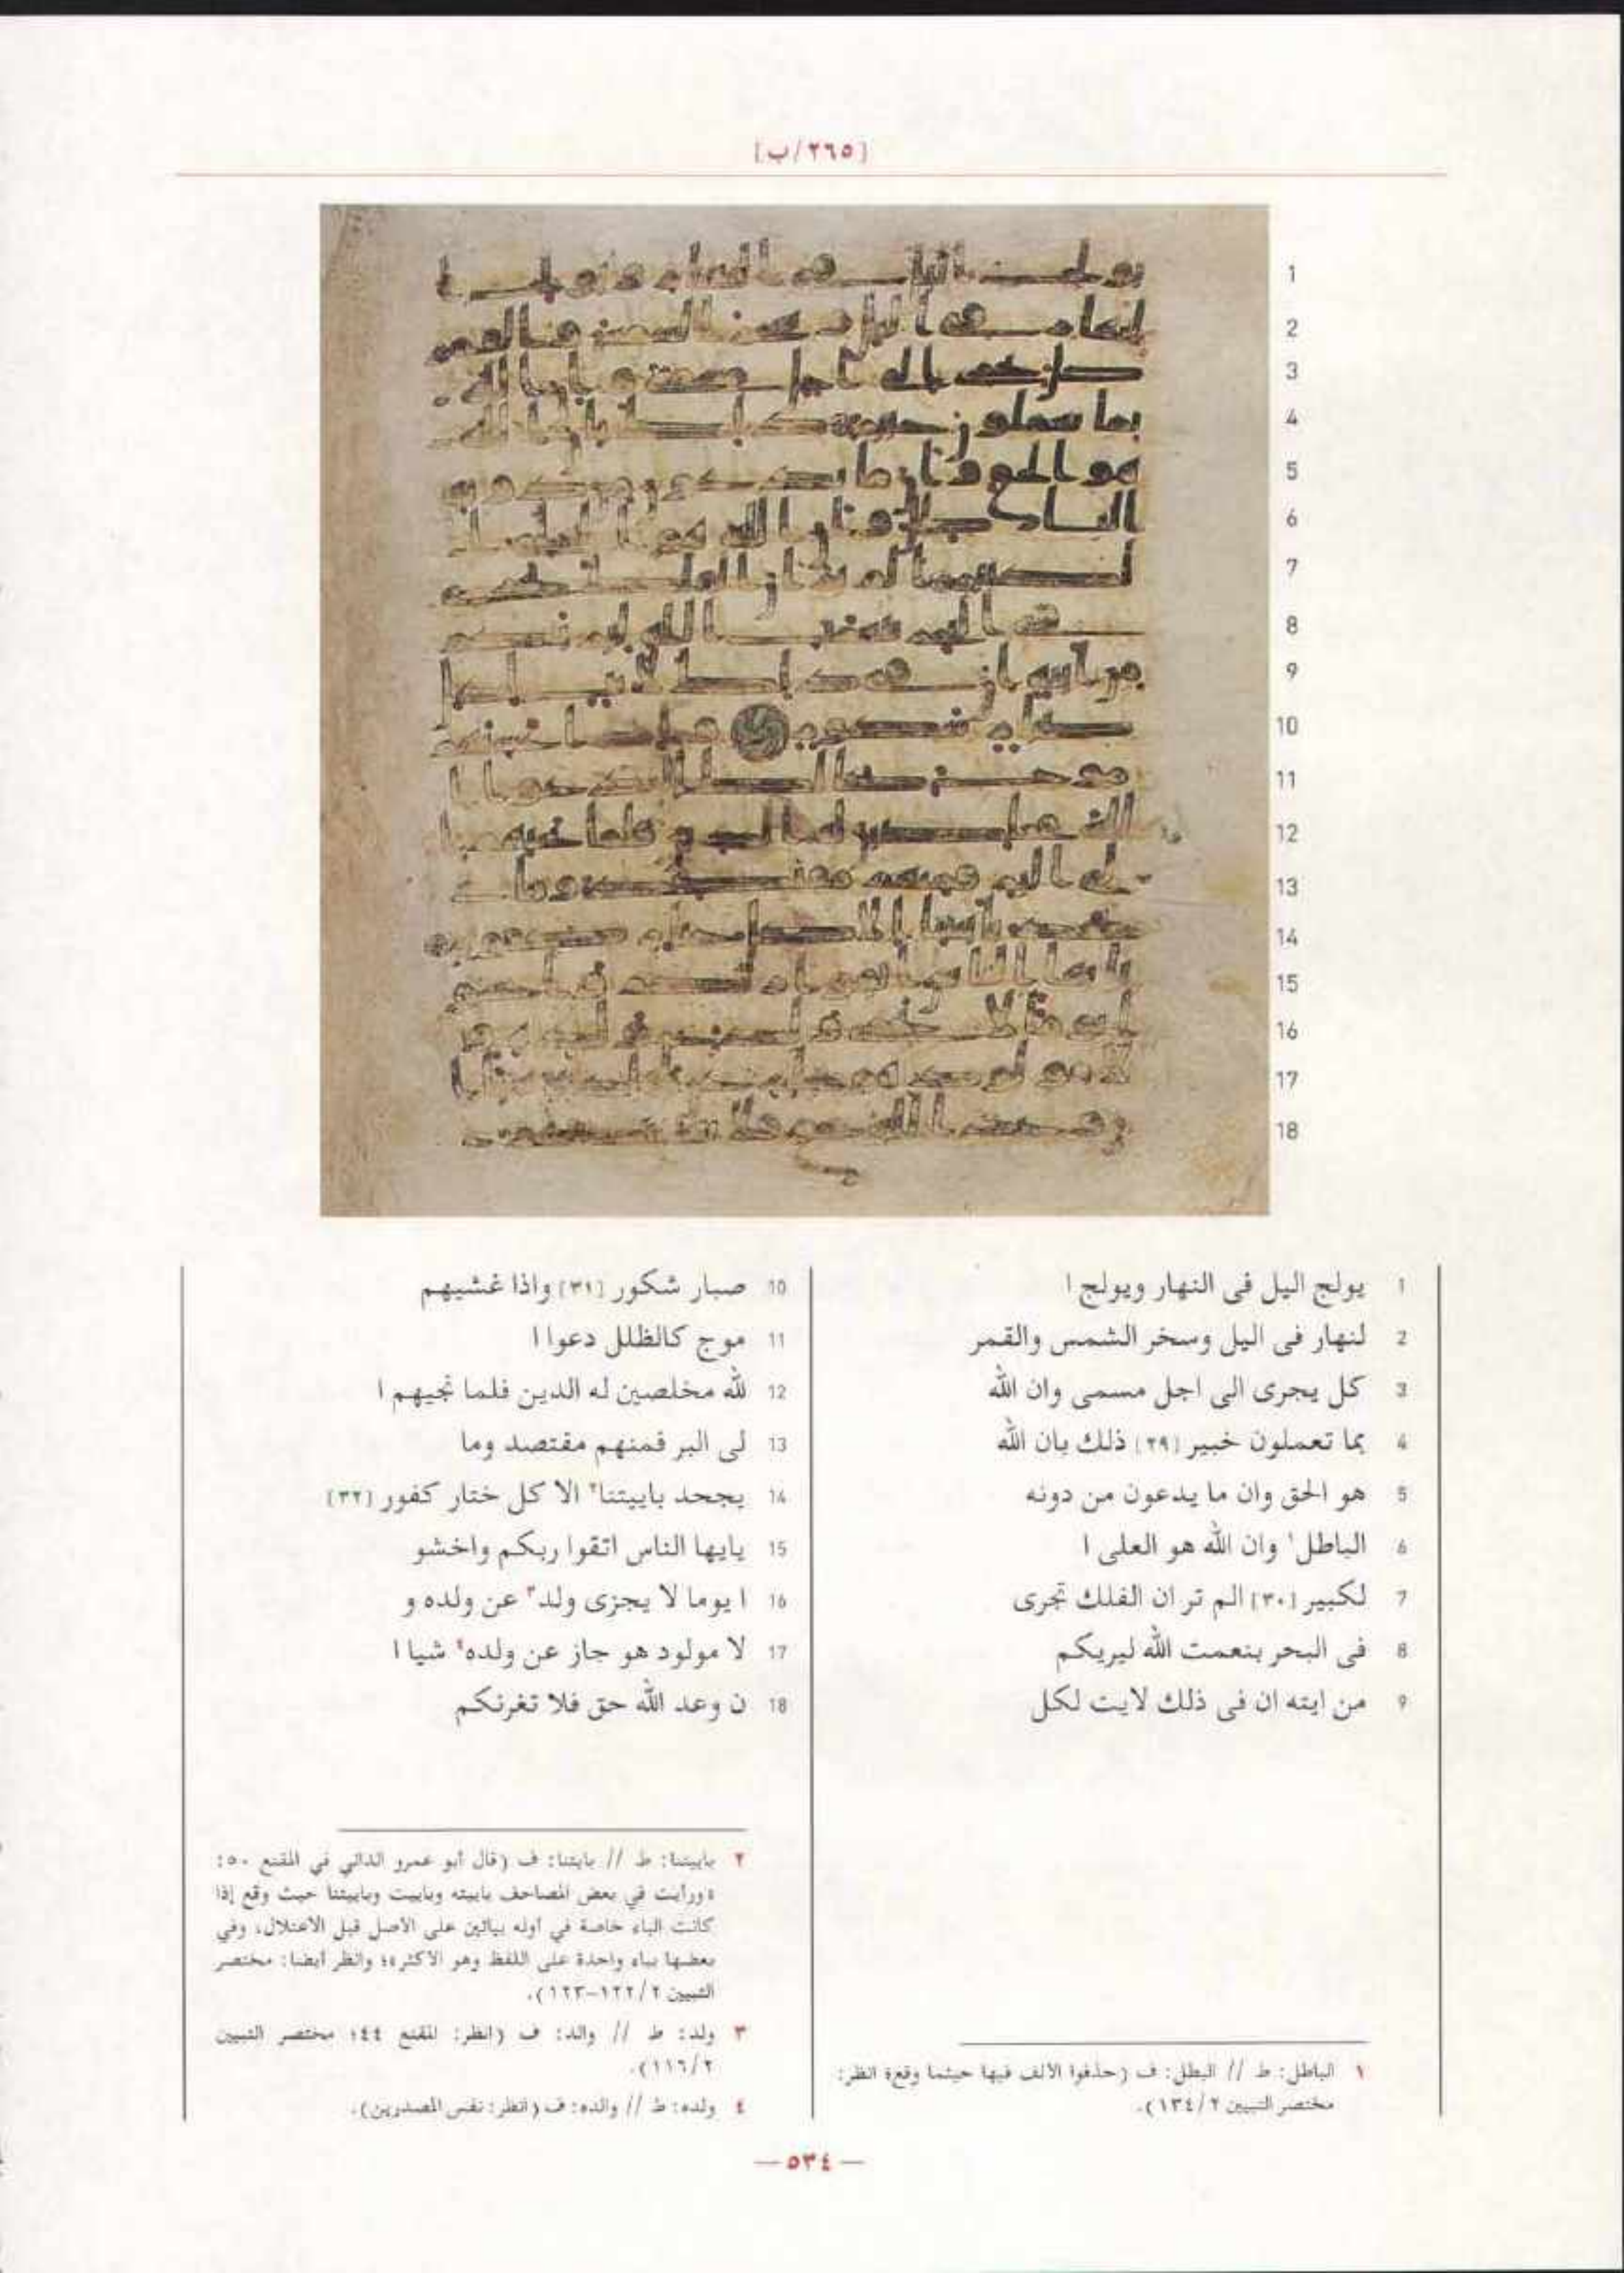 [٢٦٥/ب]
1 يولج اليل فى النهار ويولج ا
2 لنهار فى اليل وسخر الشمس والقمر
3 كل يجرى الى اجل مسمى وان الله
4 بما تعملون خبير [٢٩] ذلك بان الله
5 هو الحق وان ما يدعون من دونه
6 الباطل١ وان الله هو العلى ا
7 لكبير [٣٠] الم تر ان الفلك تجرى
8 فى البحر بنعمت الله ليريكم
9 من ايته ان فى ذلك لايت لكل
١ الباطل: ط // البطل: ف (حذفوا الألف فيها حيثما وقع؛ انظر:
مختصر التبيين ١٣٤/٢).
10 صبار شكور [٣١] واذا غشيهم
11 موج كالظلل دعوا ا
12 لله مخلصين له الدين فلما نجيهم ا
13 لى البر فمنهم مقتصد وما
14 يجحد باييتنا٢ الا كل ختار كفور [٣٢]
15 يايها الناس اتقوا ربكم واخشو
16 ا يوما لا يجزى ولد٣ عن ولده و
17 لا مولود هو جاز عن ولده٤ شيا ا
18 ن وعد الله حق فلا تغرنكم
٢ باييتنا: ط // بايتنا: ف (قال أبو عمرو الداني في المقنع ٥٠:
«ورأيت في بعض المصاحف باييته وباييت وباييتنا حيث وقع إذا
كانت الباء خاصة في أوله بيائين على الأصل قبل الاعتلال، وفي
بعضها بياء واحدة على اللفظ وهو الأكثر»؛ وانظر أيضا: مختصر
التبيين ١٢٢/٢-١٢٣).
٣ ولد: ط // والد: ف (انظر: المقنع ٤٤؛ مختصر التبيين
١١٦/٢).
٤ ولده: ط // والده: ف (انظر: نفس المصدرين).
— ٥٣٤ —